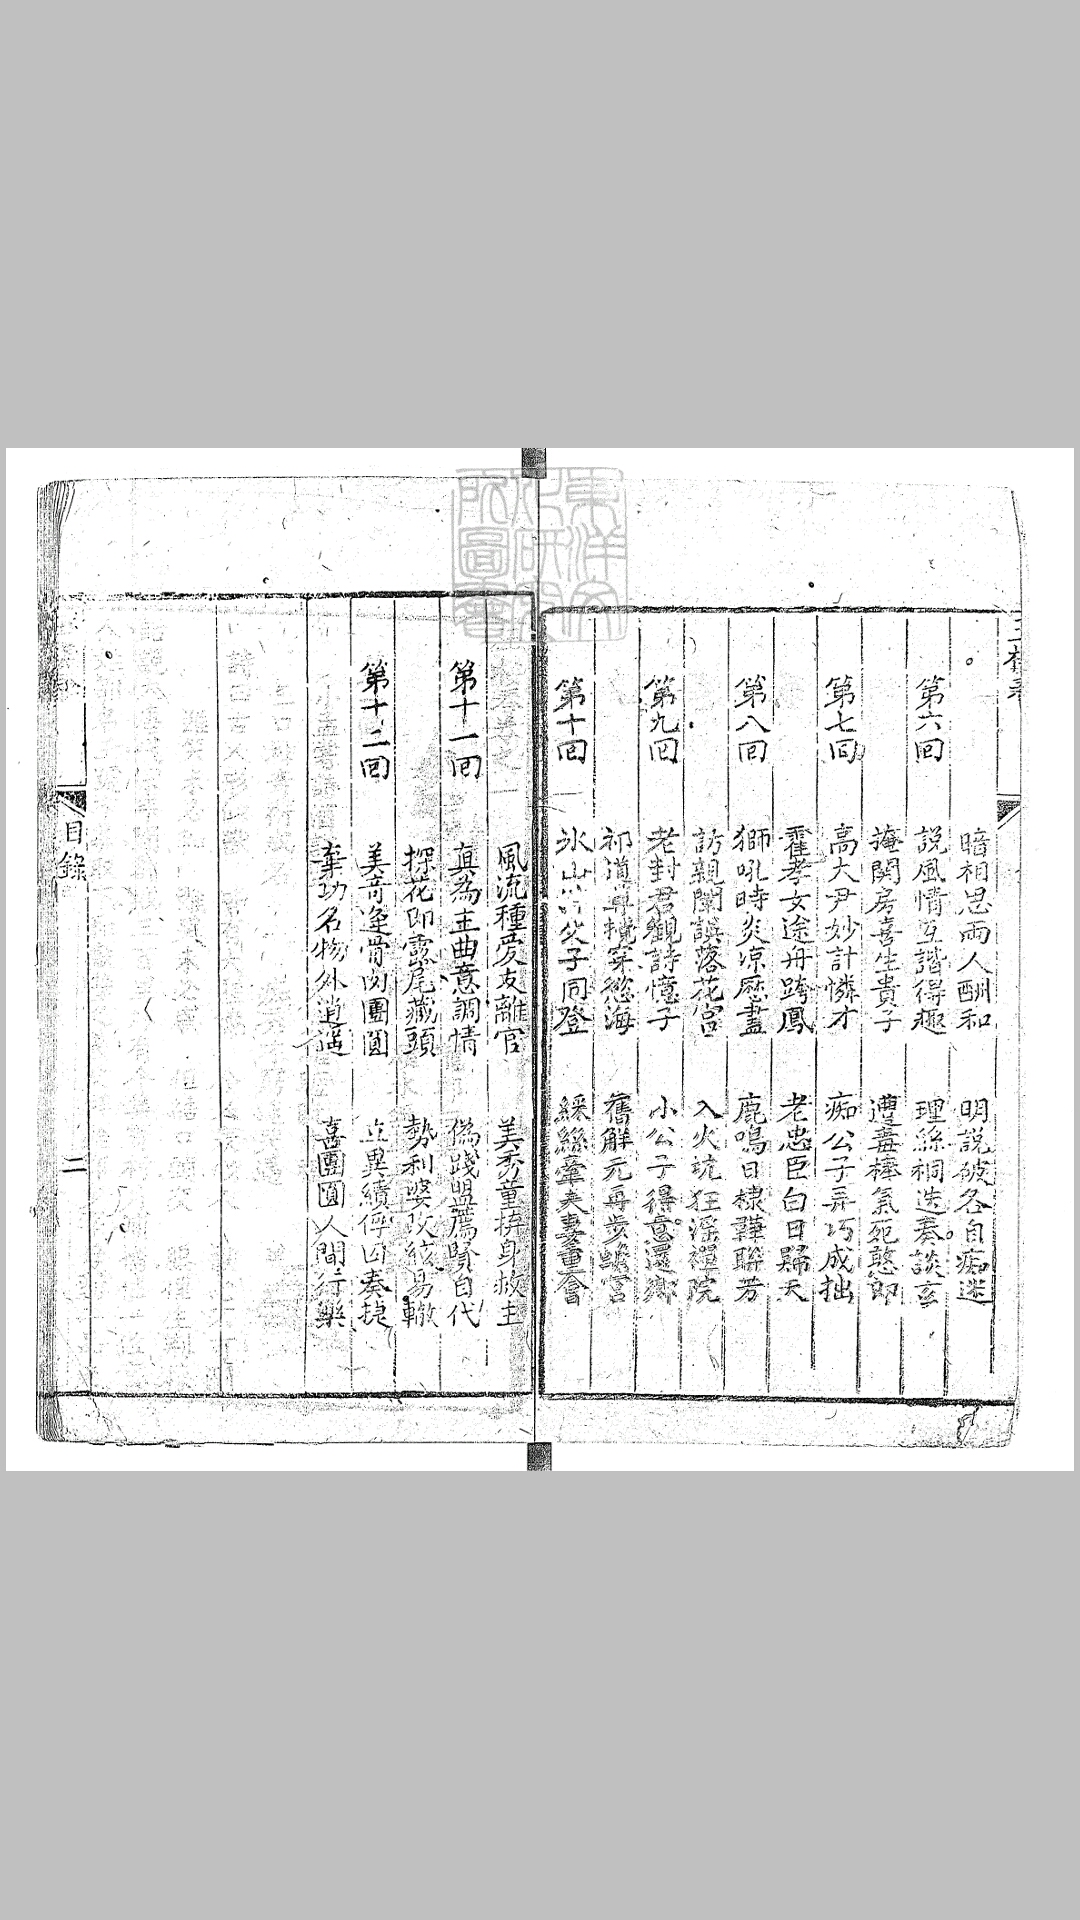 暗相思兩人酬和 明說破各自痴迷
第六回 說風情互諧得趣 理絲桐迭奏談玄
掩閨房喜生貴子 遭毒棒氣死憨郎
第七回 高大尹妙計憐才 痴公子弄巧成拙
霍孝女途舟跨鳳 老忠臣白日歸天
第八回 獅吼時炎凉歷盡 鹿鳴日棣萼聯芳
訪親闈誤落花宮 入火坑狂淫禪院
第九回 老封君觀詩憶子 小公子得意還鄉
祁道尊攪穿慾海 舊解元再步蟾宮
第十回 氷山 父子同登 綵絲牽夫妻重會
風流種愛友離官 美秀童拚身救主
第十一回 眞為主曲意調情 僞踐盟薦賢自代
探花郎露尾藏頭 勢利婆改絃易轍
第十二回 美奇逢骨肉團圓 立異績俘囚奏捷
棄功名物外逍遥 喜團圓人間行樂
目錄
二